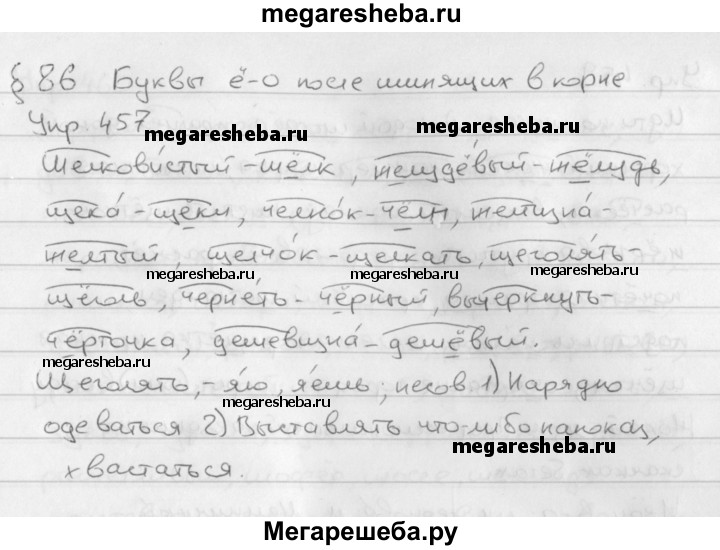 megaresheba.ru
§ 86 Буквы ё-о после шипящих в корне
Упр 457 megaresheba.ru megaresheba.ru
Шелкови́стый - шёлк, желудёвый - жёлудь,
щека́ - щёки, челно́к - чёлн, желтизна́ -
желтый, щелчо́к - щелкать, щеголя́ть -
megaresheba.ru megaresheba.ru megaresheba.ru
щёголь, черне́ть - чёрный, вычеркнуть -
чёрточка, дешевизна́ - дешёвый.
megaresheba.ru
Щеголять, - я́ю, я́ешь; несов 1) Нарядно
megaresheba.ru
одеваться 2) Выставлять что-либо напоказ,
megaresheba.ru
хвастаться.
Мегарешеба.ру